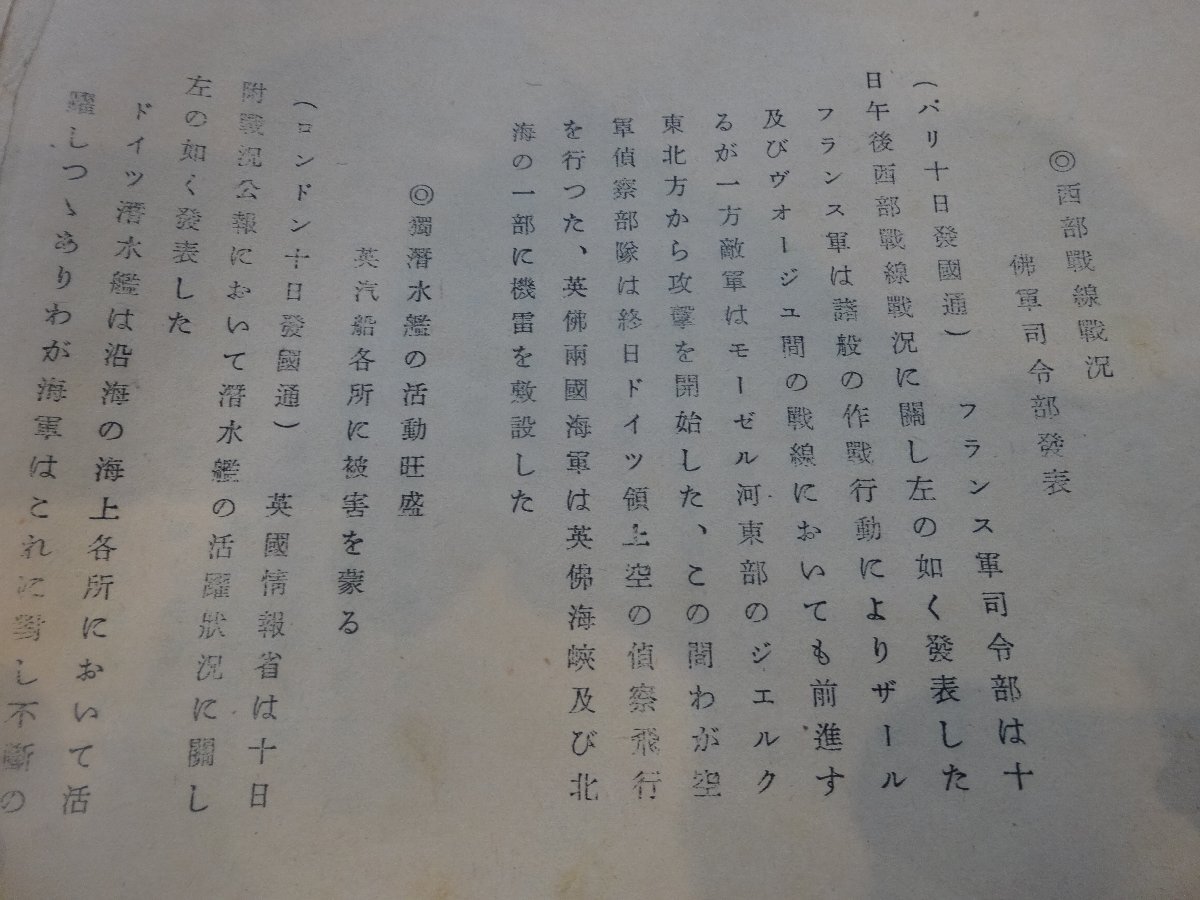 ◎西部戰線戰況
佛軍司令部發表
(パリ十日發國通) フランス軍司令部は十
日午後西部戰線戰況に關し左の如く發表した
フランス軍は諸般の作戰行動によりザール
及びヴォージュ間の戰線においても前進す
るが一方敵軍はモーゼル河東部のジエルク
東北方から攻擊を開始した、この間わが空
軍偵察部隊は終日ドイツ領上空の偵察飛行
を行つた、英佛兩國海軍は英佛海峽及び北
海の一部に機雷を敷設した
◎獨潛水艦の活動旺盛
英汽船各所に被害を蒙る
(ロンドン十日發國通) 英國情報省は十日
附戰況公報において潛水艦の活躍狀況に關し
左の如く發表した
ドイツ潛水艦は沿海の海上各所において活
躍しつゝありわが海軍はこれに對し不斷の